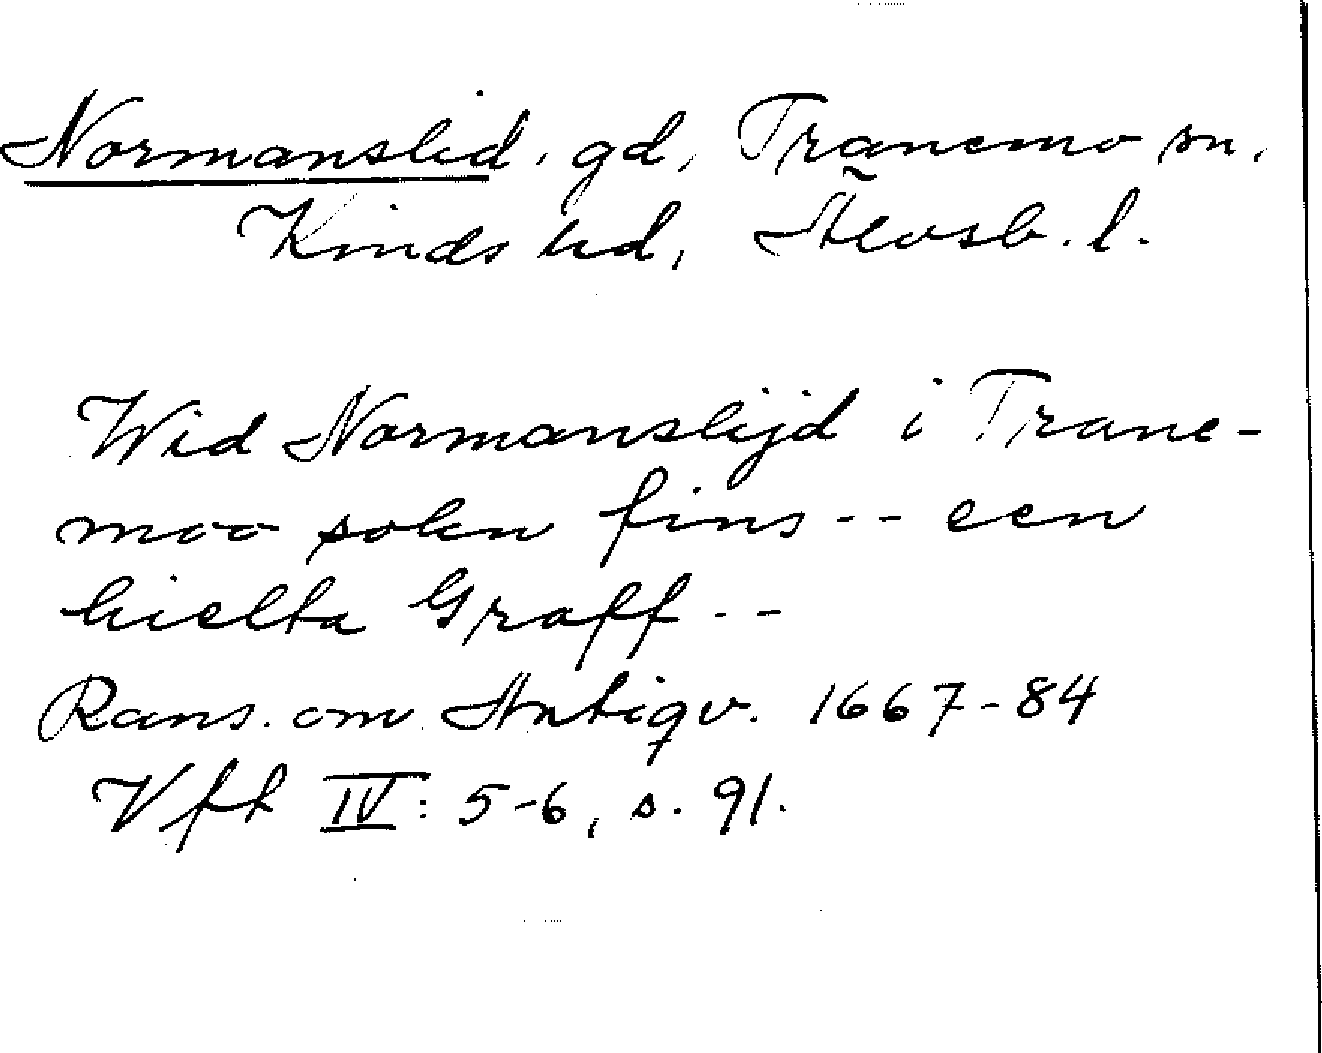 Normanslid, gd, Tranemo sn,
Kinds hd, Älvsb. l.
Wid Normanslijd i Trane-
moo sokn fins -- een
hielta Graff --
Rans. om Antiqv. 1667-84
Vft IV: 5-6, s. 91.